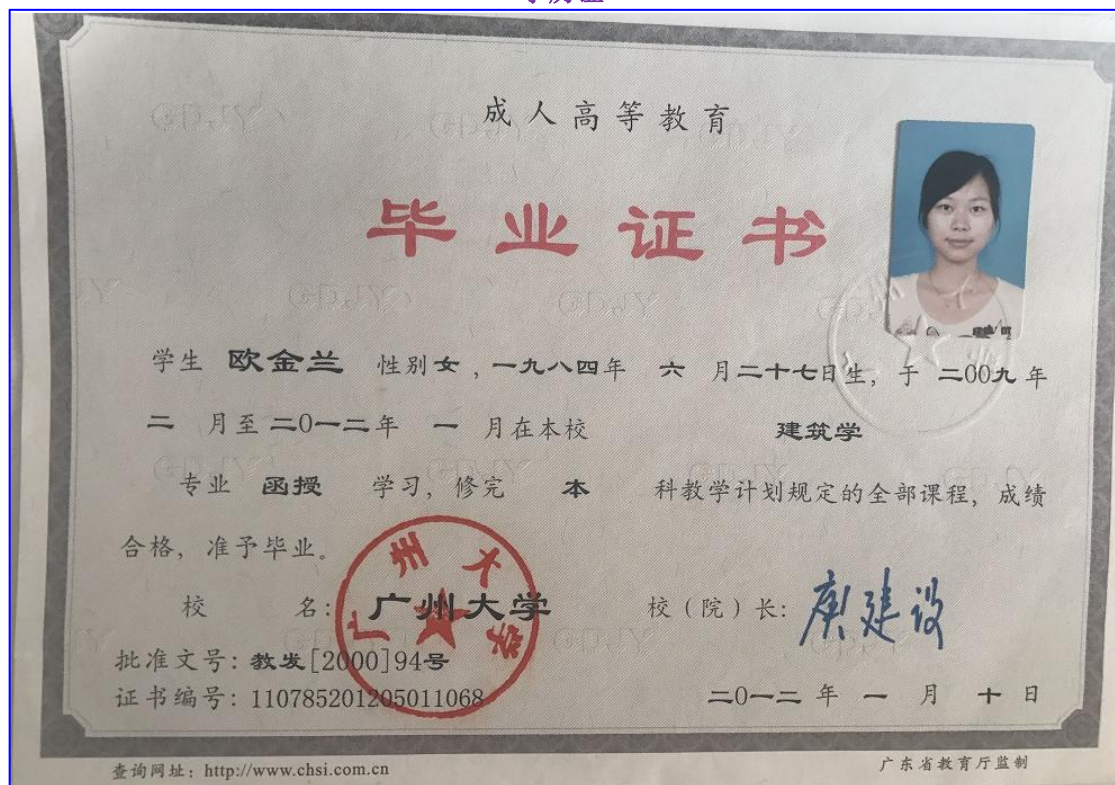 成人高等教育
毕业证书
学生 欧金兰 性别女，一九八四年 六 月二十七日生，于 二00九年
二 月至二0一二年 一 月在本校 建筑学
专业 函授 学习，修完 本 科教学计划规定的全部课程，成绩
合格，准予毕业。
校 名：广州大学 校（院）长：庾建设
广州大学
批准文号：教发[2000]94号
证书编号：110785201205011068 二0一二 年 一 月 十 日
查询网址：http://www.chsi.com.cn 广东省教育厅监制